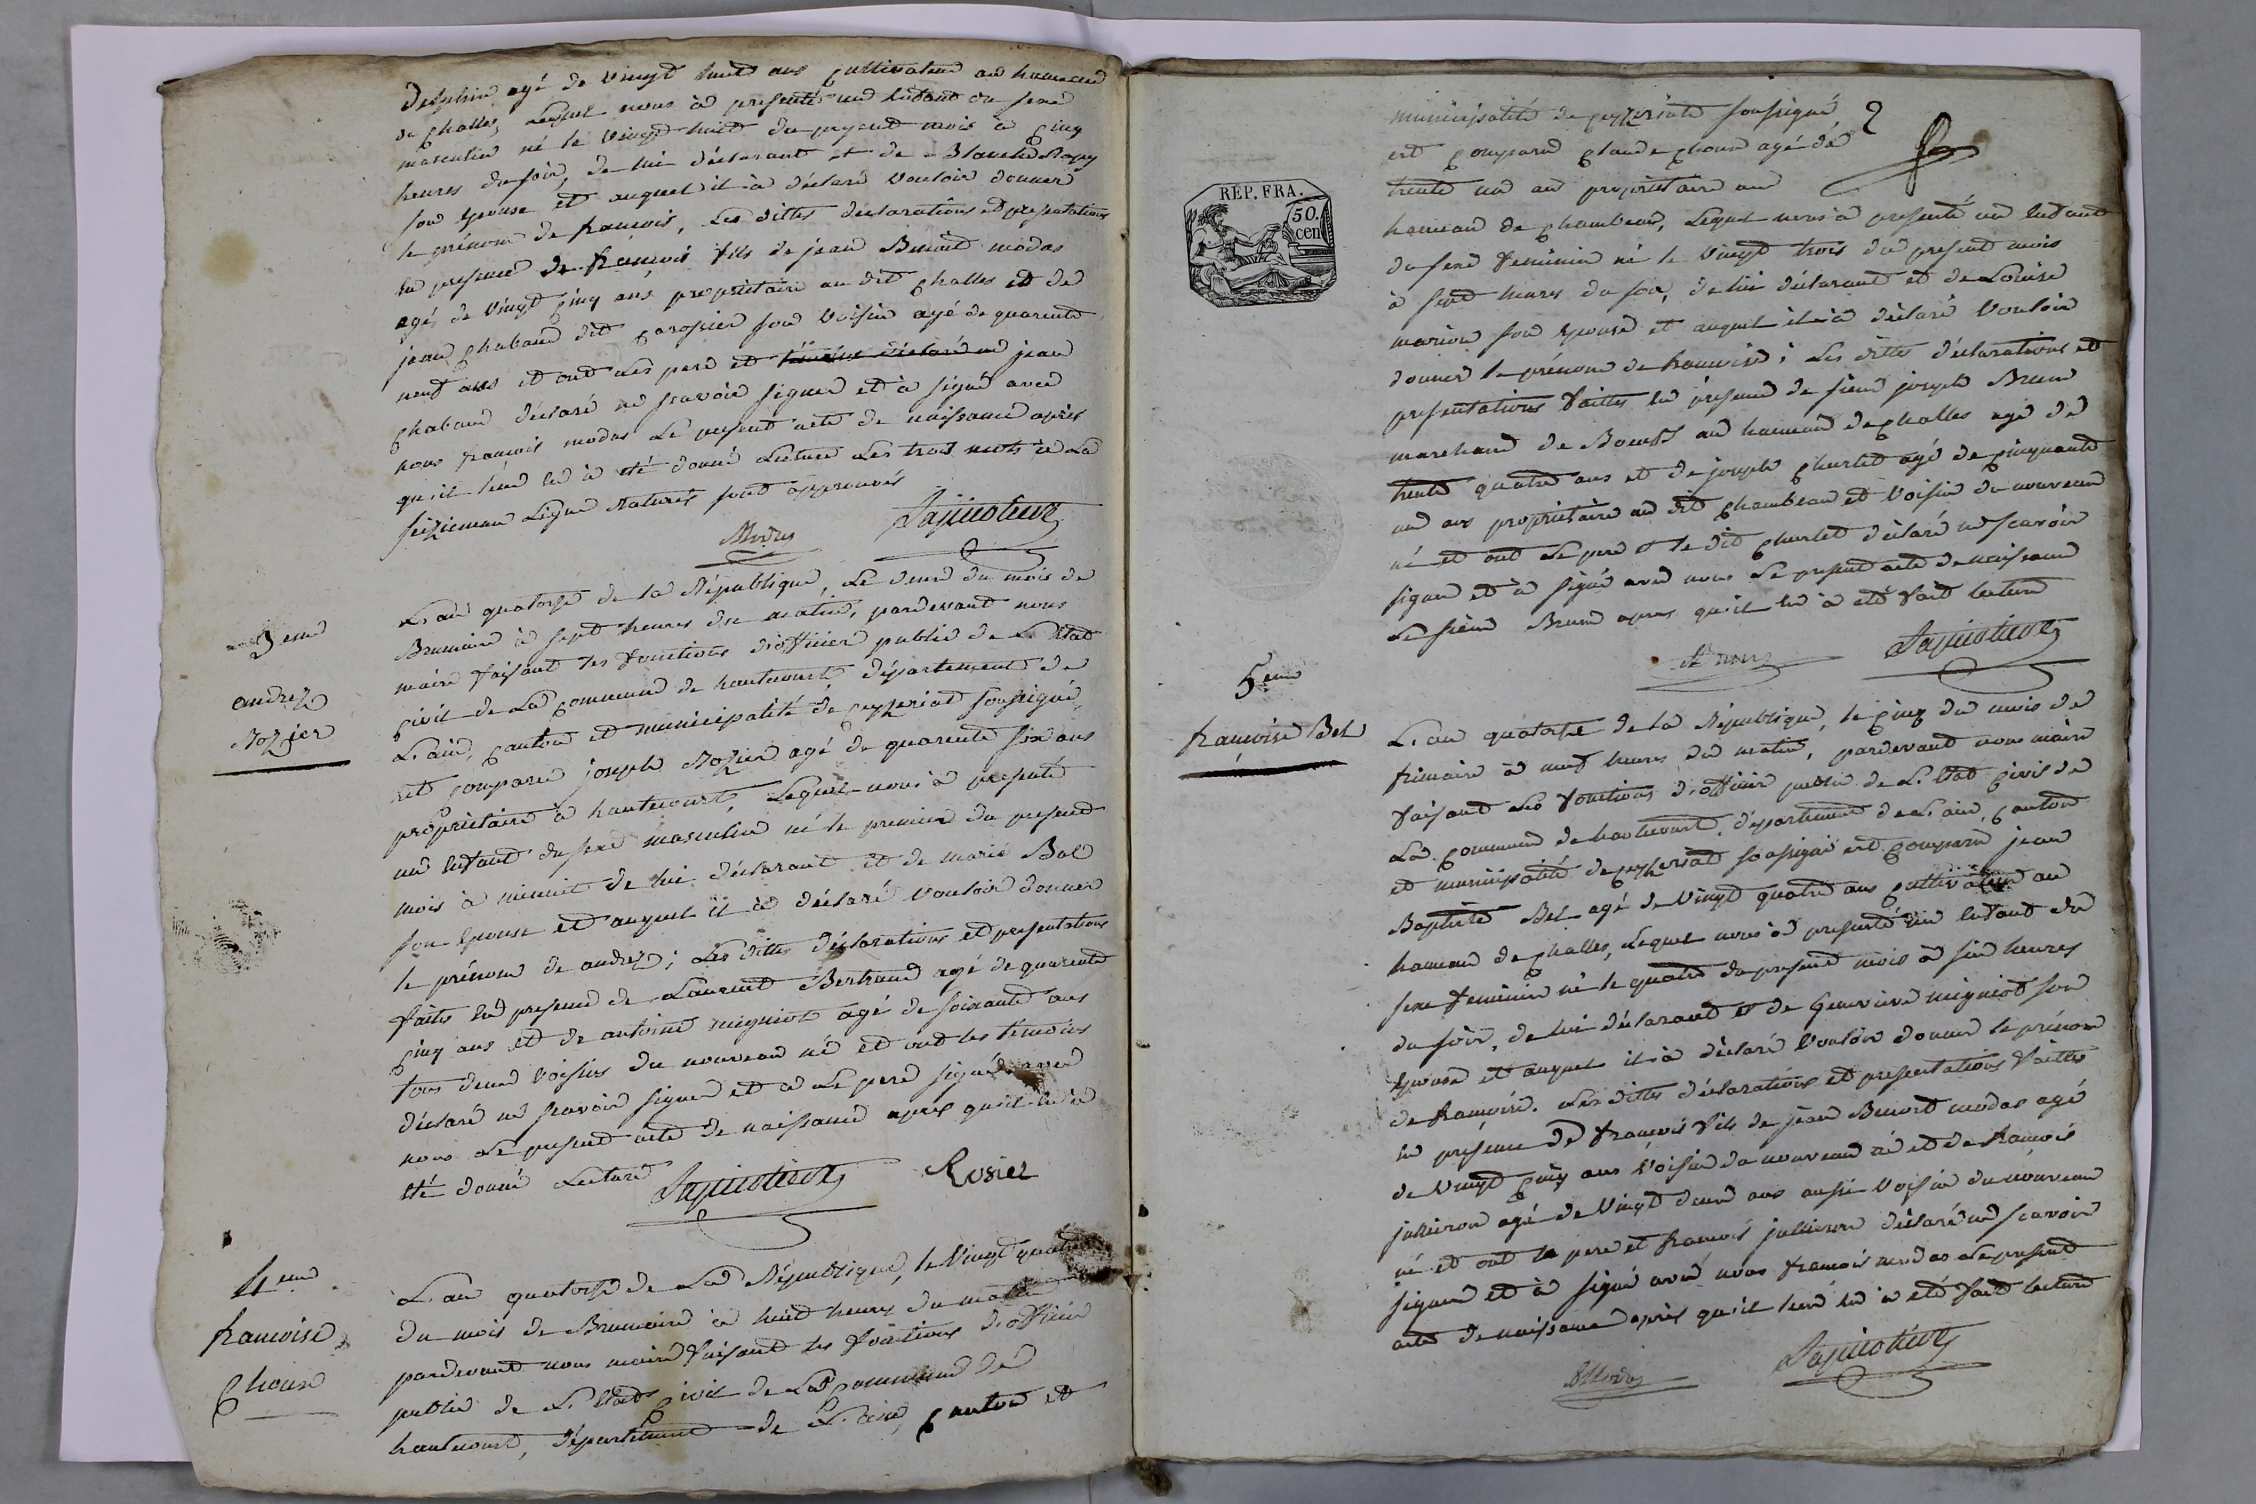 Delphin agé de vingt huit ans cultivateur au hameau
de challes, Lequel nous à presenté un enfant du sexe
masculin né le vingt huit du present mois à cinq
heures du soir, de lui déclarant et de Blanche
son epouse et auquel il à déclaré vouloir donner
le prénom de francois, Les dittes déclarations et presentations
en presence de francois fils de jean Benoit modas
agés de vingt cinq ans propriétaire au dit challes et de
jean chabaud dit son voisin agé de quarente
neuf ans et ont les pere et jean
chabaud déclaré ne scavoir signer et à signé avec
nous francois modas Le present acte de naissance après
qu'il leur en à été donné Lecture Les trois mots à La
seizieme Ligne raturés sont approuvés
Modas
3eme
andrez
Rozier
L'an quatorze de la République, Le deux du mois de
Brumaire à sept heures du matin, pardevant nous
maire faisant les fonctions d'officier public de L'état
civil de La commune de hautecourt département de
L'ain, canton et municipalité de ceyzeriat soussigné,
est comparu joseph Rozier agé de quarente six ans
propriétaire à hautecourt, Lequel nous à presenté
un enfant du sexe masculin né le premier du present
mois à minuit de lui déclarant et de marie Bal
son epouse et auquel il à déclaré vouloir donner
le prénom de andrez; Les dittes déclarations et presentations
faites en presence de Laurent Bertrand agé de quarente
cinq ans et de antoine migniot agé de soixante ans
tous deux voisins du nouveau né et ont les témoins
déclaré ne scavoir signer et à Le pere signé avec
nous Le present acte de naissance apres qu'il en à
été donné Lecture
Rosier
4eme
francoise
choux
L'an quatorze de La République, le vingt quatre
du mois de Brumaire à huit heures du matin
pardevant nous maire faisant les fonctions d'officier
public de L'état civil de La commune de
hautecourt, département de L'ain, canton et
municipalité de ceyzeriat soussigné
est comparu claude choux agé de
trente un an propriétaire au
REP. FRA.
50.
cen
hameau de chambeau, Lequel nous à presenté un enfant
du sexe feminin né le vingt trois du present mois
à sept heures du soir, de lui déclarant et de Louise
marion son epouse et auquel il à déclaré vouloir
donner le prénom de francoise; Les dittes déclarations et
presentations faittes en présence de sieur joseph Brun
marchand de Boeufs au hameau de challes agé de
trente quatre ans et de joseph churlet agé de cinquante
un ans propriétaire au dit chambeau et voisin du nouveau
né et ont Le pere et le dit churlet déclaré ne scavoir
signer et à signé avec nous Le present acte de naissance
Le sieur Brun apres qu'il en à été fait lecture
5eme
francoise Bel
L'an quatorze de la République, le cinq du mois de
frimaire à neuf heures du matin, pardevant nous maire
faisant Les fonctions d'officier public de L'état civil de
La commune de hautecourt, département de L'ain, canton
et municipalité de ceyzeriat soussigné est comparu jean
Baptiste Bel agé de vingt quatre ans cultivateur au
hameau de challes, Lequel nous à presenté un enfant du
sexe feminin né le quatre du present mois à six heures
du soir, de lui déclarant et de Genevieve migniot son
epouse et auquel il à déclaré vouloir donner le prénom
de francoise. Les dittes déclarations et presentations faittes
en présence de francois fils de jean Benoit modas agé
de vingt cinq ans voisin du nouveau né et de francois
jullieron agé de vingt deux ans aussi voisin du nouveau
né et ont le pere et francois jullieron déclaré ne scavoir
signer et à signé avec nous francois modas Le present
acte de naissance après qu'il leur en à été fait lecture
Modas